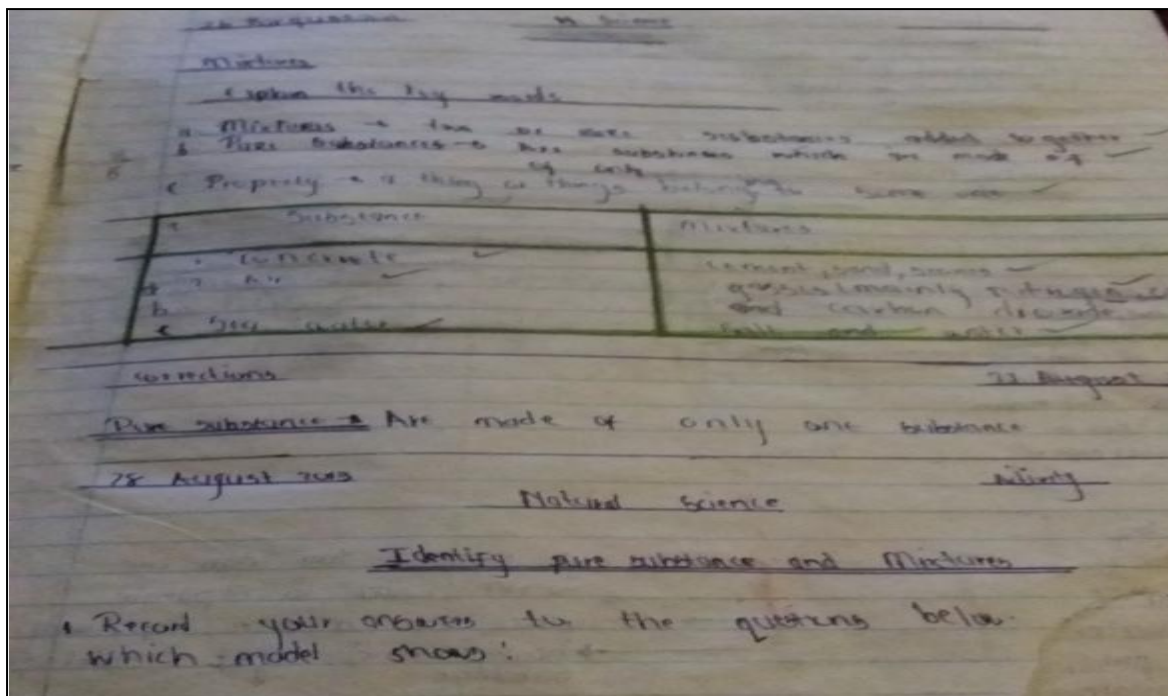 26 August N Science
Mixtures
Explain the key words
a Mixtures → two or more substances added together
b Pure Substances → Are substances which are made of
of only
c Property → a thing or things belong to some
Substance Mixtures
Concrete cement, sand, stones
Air gasses (mainly nitrogen
and carbon dioxide
Sea water Salt and water
Corrections 27 August
Pure substance → Are made of only one substance
28 August 2013 Activity
Natural Science
Identify pure substance and Mixtures
1 Record your answers to the questions below.
which model shows: